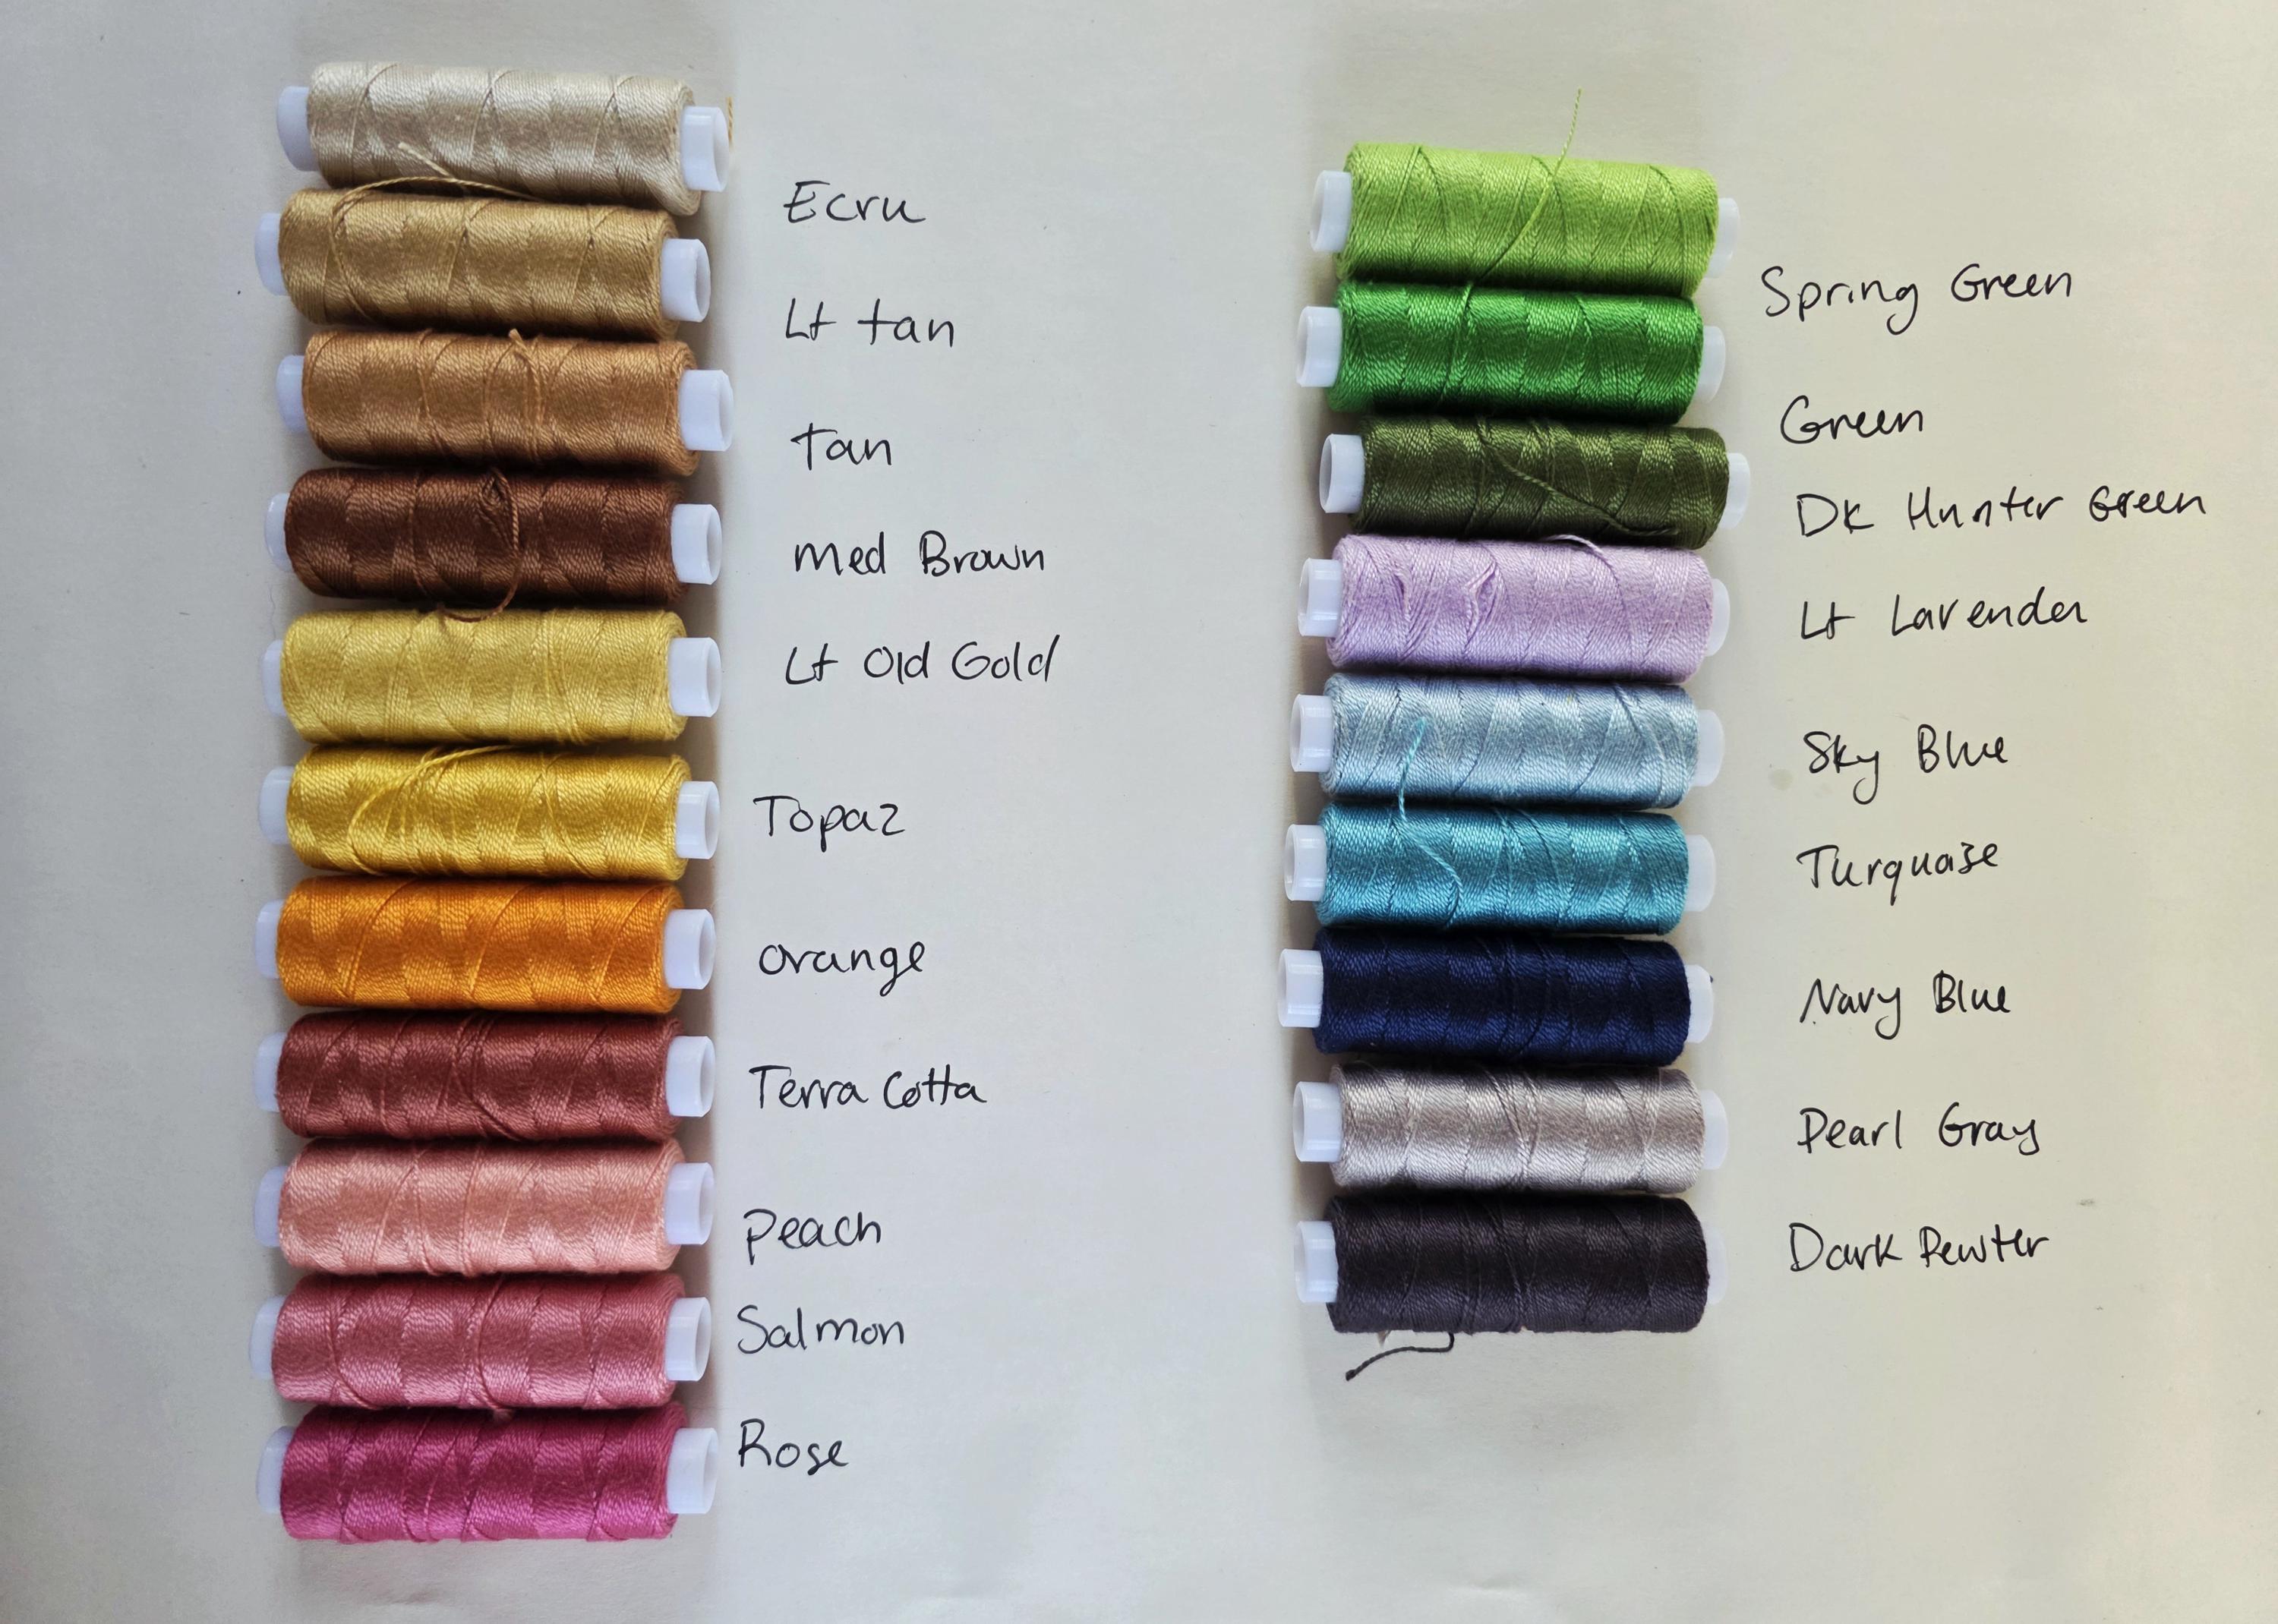 Ecru
Lt tan
Tan
Med Brown
Lt Old Gold
Topaz
Orange
Terra Cotta
Peach
Salmon
Rose
Spring Green
Green
Dk Hunter Green
Lt Lavender
Sky Blue
Turquoise
Navy Blue
Pearl Gray
Dark Pewter